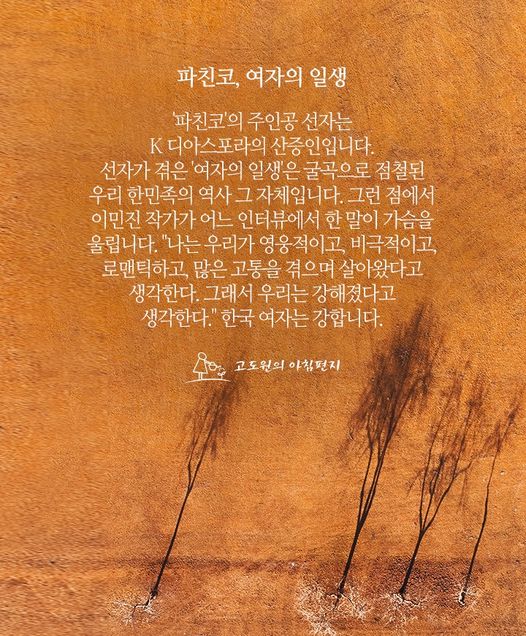 파친코, 여자의 일생
'파친코'의 주인공 선자는
K 디아스포라의 산증인입니다.
선자가 겪은 '여자의 일생'은 굴곡으로 점철된
우리 한민족의 역사 그 자체입니다. 그런 점에서
이민진 작가가 어느 인터뷰에서 한 말이 가슴을
울립니다. "나는 우리가 영웅적이고, 비극적이고,
로맨틱하고, 많은 고통을 겪으며 살아왔다고
생각한다. 그래서 우리는 강해졌다고
생각한다." 한국 여자는 강합니다.
고도원의 아침편지